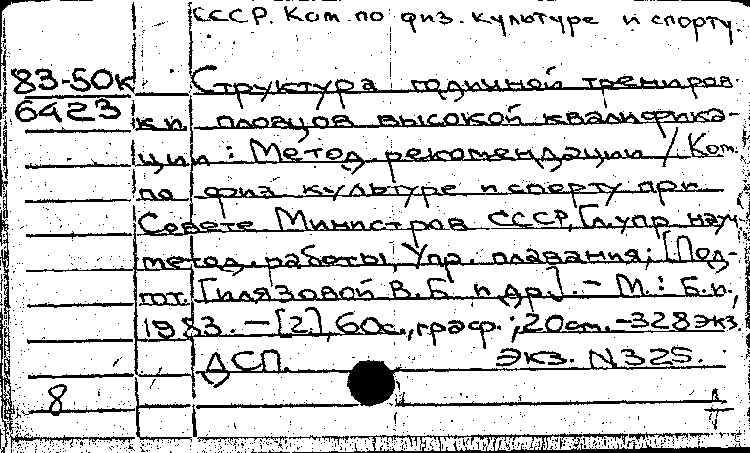 СССР. Ком. по физ. культуре и спорту.
83-50к
6423
Структура годичной трениров-
ки пловцов высокой квалифика-
ции : Метод. рекомендации / Ком.
по физ. культуре и спорту при
Совете Министров СССР, Гл. упр. науч.
метод. работы, Упр. плавания; [Под-
гот. Гилязовой В.Б. и др.]. - М. : Б.и.,
1983. - [2], 60с., граф.; 20см. - 328 экз.
ДСП. Экз. N325.
8